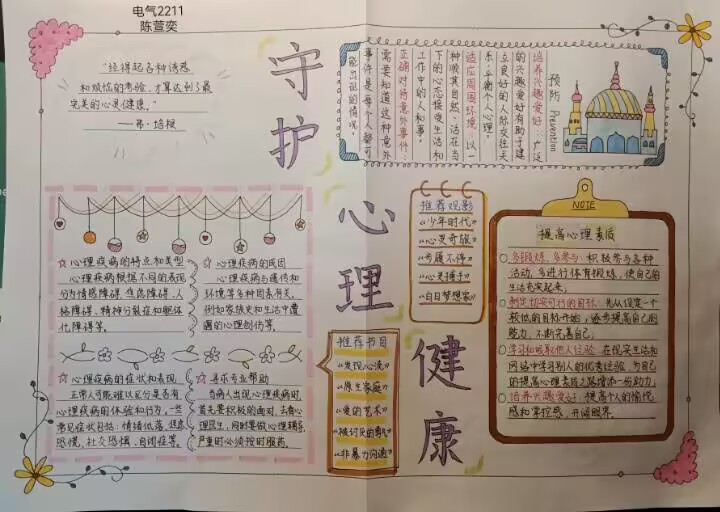 电气2211
陈萱奕
守护
心理
健康
"经得起各种诱惑
和烦恼的考验,才算达到了最
完美的心灵健康。"
——弗·培根
预防 Prevention
培养兴趣爱好:广泛
的兴趣爱好有助于建
立良好的人际交往关
系,平衡个人心理。
适应周围环境:以一
种顺其自然、活在当
下的心态接受生活和
工作中的人和事。
正确对待意外事件:
需要知道这种意外
事件是每个人都可
能出现的情况。
心理疾病的特点和类型
心理疾病根据不同的表现
分为情感障碍、焦虑障碍、人
格障碍、精神分裂和躯体
化障碍等。
心理疾病的成因
心理疾病与遗传和
环境等多种因素有关,
例如家族史和生活中遭
遇的心理创伤等。
心理疾病的症状和表现
正常人可能难以区分是否有
心理疾病的体验和行为,一些
常见症状包括:情绪低落、焦虑
恐慌、社交恐惧、自闭症等。
寻求专业帮助
当病人出现心理疾病时,
首先要积极的面对,去看心
理医生,同时要做心理辅导,
严重时必须按时服药。
推荐观影
《少年时代》
《心灵奇旅》
《步履不停》
《心灵捕手》
《白日梦想家》
推荐书目
《发现心流》
《原生家庭》
《爱的艺术》
《被讨厌的勇气》
《非暴力沟通》
NOTE
提高心理素质
多锻炼,多参与:积极参与各种
活动,多进行体育锻炼,使自己的
生活充实起来。
制定切实可行的目标:先从设定一个
较低的目标开始,逐步提高自己的
能力,不断完善自己。
学习和吸取他人经验:在现实生活和
网络中学习别人的优秀经验,为自己
的提高心理素质之路增添一份助力。
培养兴趣爱好:提高个人的愉悦
感和掌控感,开阔眼界。